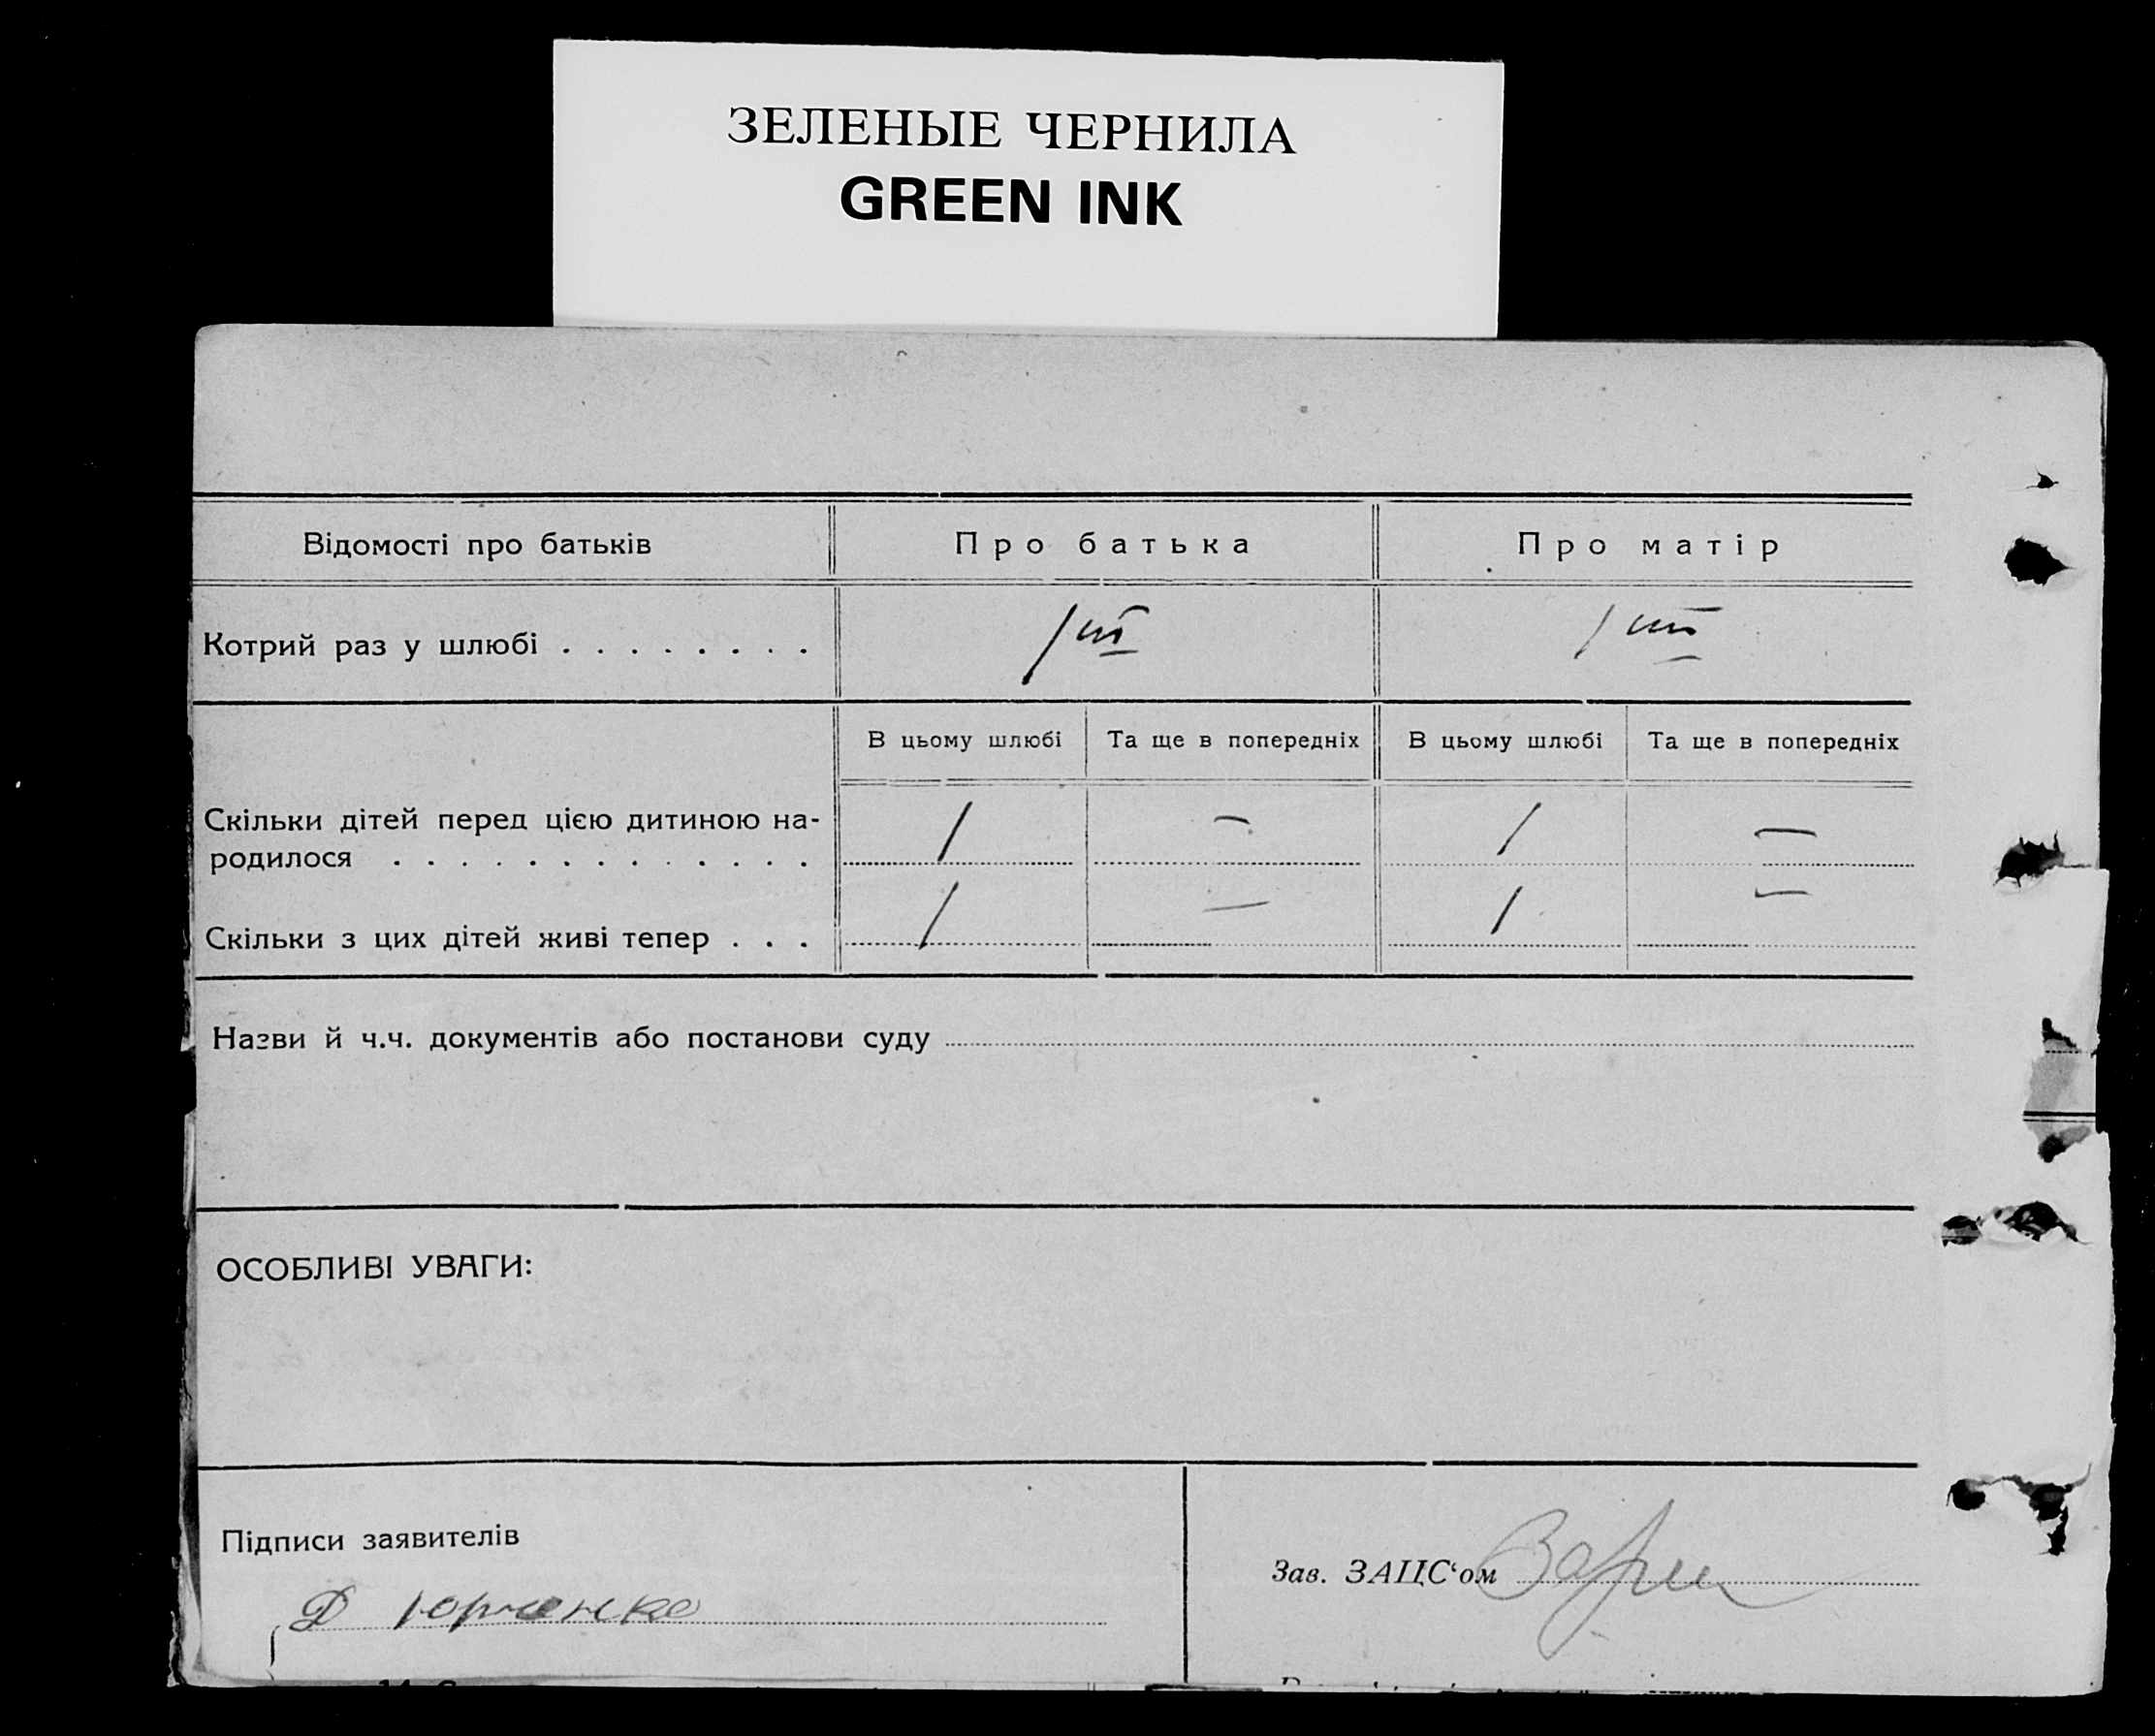 ЗЕЛЕНЫЕ ЧЕРНИЛА
GREEN INK
Відомості про батьків Про батька Про матір
Котрий раз у шлюбі . . . . . . . . 1ий 1ий
В цьому шлюбі Та ще в попередніх В цьому шлюбі Та ще в попередніх
Скільки дітей перед цією дитиною на-
родилося . . . . . . . . . . . . . 1 — 1 —
Скільки з цих дітей живі тепер . . . 1 — 1 —
Назви й ч.ч. документів або постанови суду
ОСОБЛИВІ УВАГИ:
Підписи заявителів
Зав. ЗАЦС‘ом